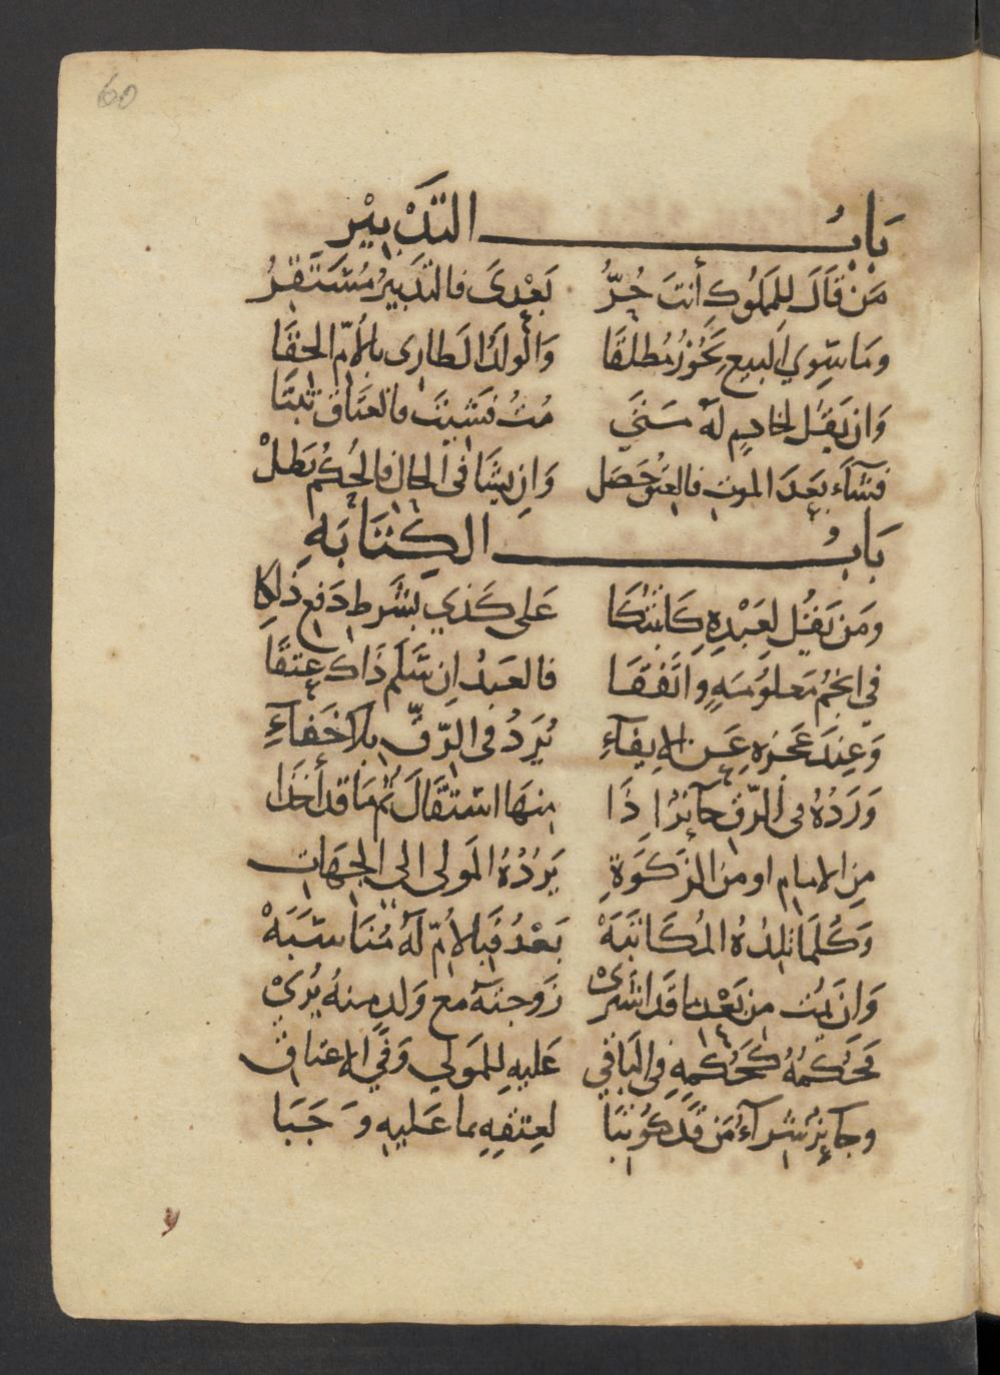 60
بَابُ التَّدْبِيْر
مَنْ قَالَ لِلمَلُوكِ أنتَ حُرُّ بَعْدِىَ فالتدبيرُ مُستَقِرُ
وَمَا سِوي البيع يَجُوزُ مُطلقَا وَالولدُ الطارى بالأمّ الحقَا
وَان يَقُل لخادمٍ لَهُ مَتَي مُتُ فشيتَ فالعتاق ثبتَا
فشآءَ بعدَ الموت فالعتق حَصَل وَان يشا فى الحال فالحُكمُ بَطلْ
بَابُ الكِتَابَهِ
وَمَن يَقُل لِعَبْدِهِ كَاتبتُكَا عَلى كَذي بشَرطِ دَفع ذَلِكا
في انجُمٍ مَعلوُمَةٍ وانفقَا فالعبدُ ان سَلم ذَاك عِتقَا
وَعِندَ عَجزهِ عَن الايفآءِ يُرَدُ فى الرّقِّ بلا خَفآءِ
وَرَدُهُ فى الرّق جآئزُ اِذَا منهَا استقَالَ ثُم مَا قد أخذَا
مِن الامام او منَ الزكوَةِ يَرُدُهُ المَولى الى الجهَاتِ
وَكُلمَا تلدُهُ المُكَاتبَهْ بَعْدُ فَبالأُمّ لَهُ مُنَاسَبَهْ
وَان يَمُت مِن بَعْدِ ما قَد اشترىْ زَوجتهُ مع وَلدٍ منهُ يُرَىْ
فَحُكمُهُ كحُكمِهِ فى البَاقي عَليهِ للمَولي وَفي الاعتاق
وجآئزُ شرآءُ مَن قَد كوُتبَا لعِتقِهِ بما عَليهِ وَجَبَا